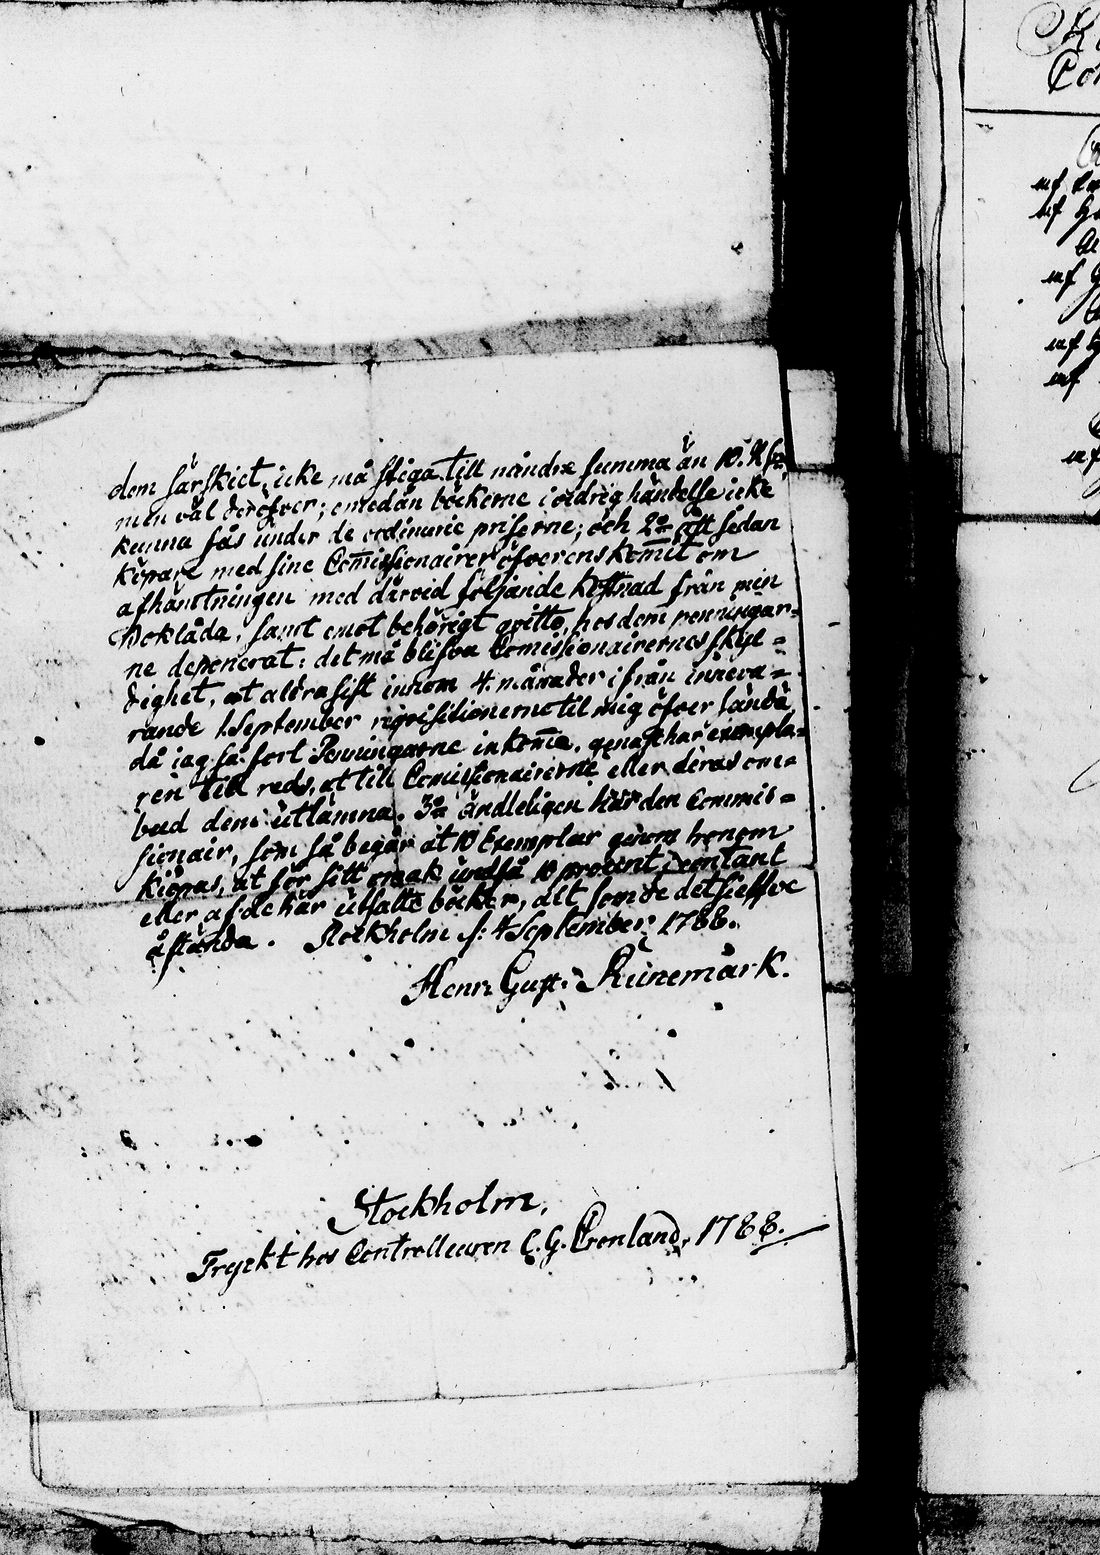 dem särskict, icke må stiga till mindre summa än 10. R
men väl deröfver; emedan böckerne i vidrig händelse icke
kunna fås under de ordinarie priserne; och 2:o att sedan
köpare med sine Com̄issionairer öfverenskom̄it om
afhämtningen med därvid följande kostnad från min
Boklåda, samt emot behörigt qvitto, hos dem penningar=
ne deponerat: det må blifva Comissionairernes skyl=
dighet, at aldrasist innom 4. månader ifrån inneva=
rande 1. September reqvisitionerne til mig öfversända,
då jag så fort Penningarne inkom̄a, genast har exempla=
ren till reds, at till Comissionairerne eller deras om=
bud dem utlämna. 3:o ändteligen har den Commis=
sionair, som så begär at 10 Exemplar genom honom
kiöpas, at för sitt omak undfå 10 procent, i contant
eller af de här utsatte böcker, alt som de det sielfve
åstunda. Stockholm d: 4 September 1788.
Henr: Gust: Runemark.
Stockholm,
Tryckt hos Controlleuren C. G. Cronland, 1788.
K
Co
uf
uf
uf
uf
uf
uf